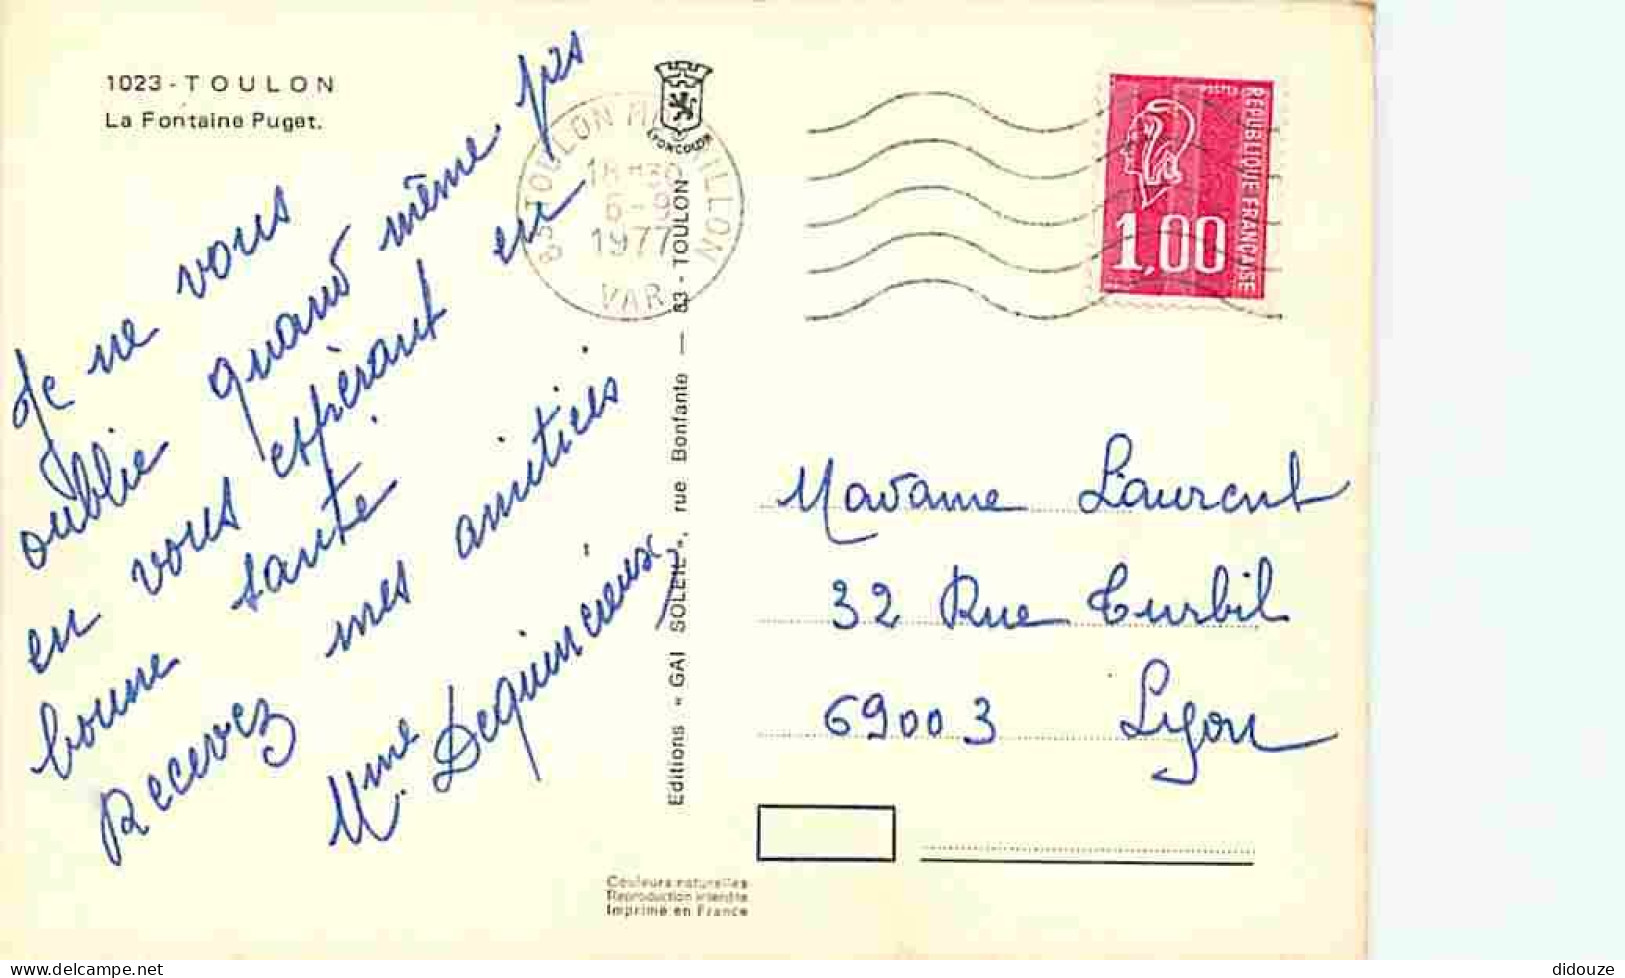 1023 - TOULON
La Fontaine Puget.
Je ne vous
oublie quand même pas
en vous espérant en
bonne santé
Recevez mes amitiés
Mme Dequincieux
LYONCOLOR
TOULON VAR
1977
Editions « GAI SOLEIL », rue Bonfante — 83 - TOULON
POSTES
REPUBLIQUE FRANÇAISE
1,00
Madame Laurent
32 Rue Turbil
69003 Lyon
Couleurs naturelles
Reproduction interdite
Imprimé en France
www.delcampe.net
didouze